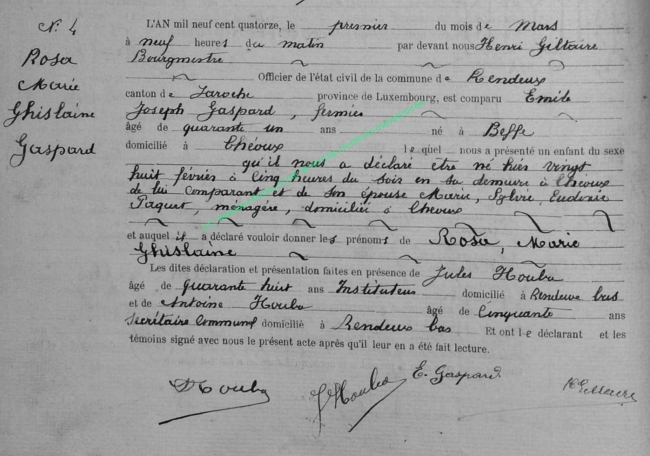 N. 4
Rosa
Marie
Ghislaine
Gaspard
L'AN mil neuf cent quatorze, le premier du mois de Mars
à neuf heures du matin par devant nous Henri Giltaire
Bourgmestre
Officier de l'état civil de la commune de Rendeux
canton de Laroche province de Luxembourg, est comparu Emile
Joseph Gaspard, fermier
âgé de quarante un ans né à Beffe
domicilié à Cheoux lequel nous a présenté un enfant du sexe
qu'il nous a déclaré être né hier vingt
huit février à cinq heures du soir en sa demeure à Cheoux
de lui comparant et de son épouse Marie, Eudoxie
Paquet, ménagère, domiciliée à Cheoux
et auquel il a déclaré vouloir donner les prénoms de Rosa, Marie
Ghislaine
Les dites déclaration et présentation faites en présence de Jules Houba
âgé de quarante huit ans Instituteur domicilié à Rendeux bas
et de Antoine Houba âgé de Cinquante ans
Secrétaire Communal domicilié à Rendeux bas Et ont le déclarant et les
témoins signé avec nous le présent acte après qu'il leur en a été fait lecture.
Houba
J Houba
E. Gaspard